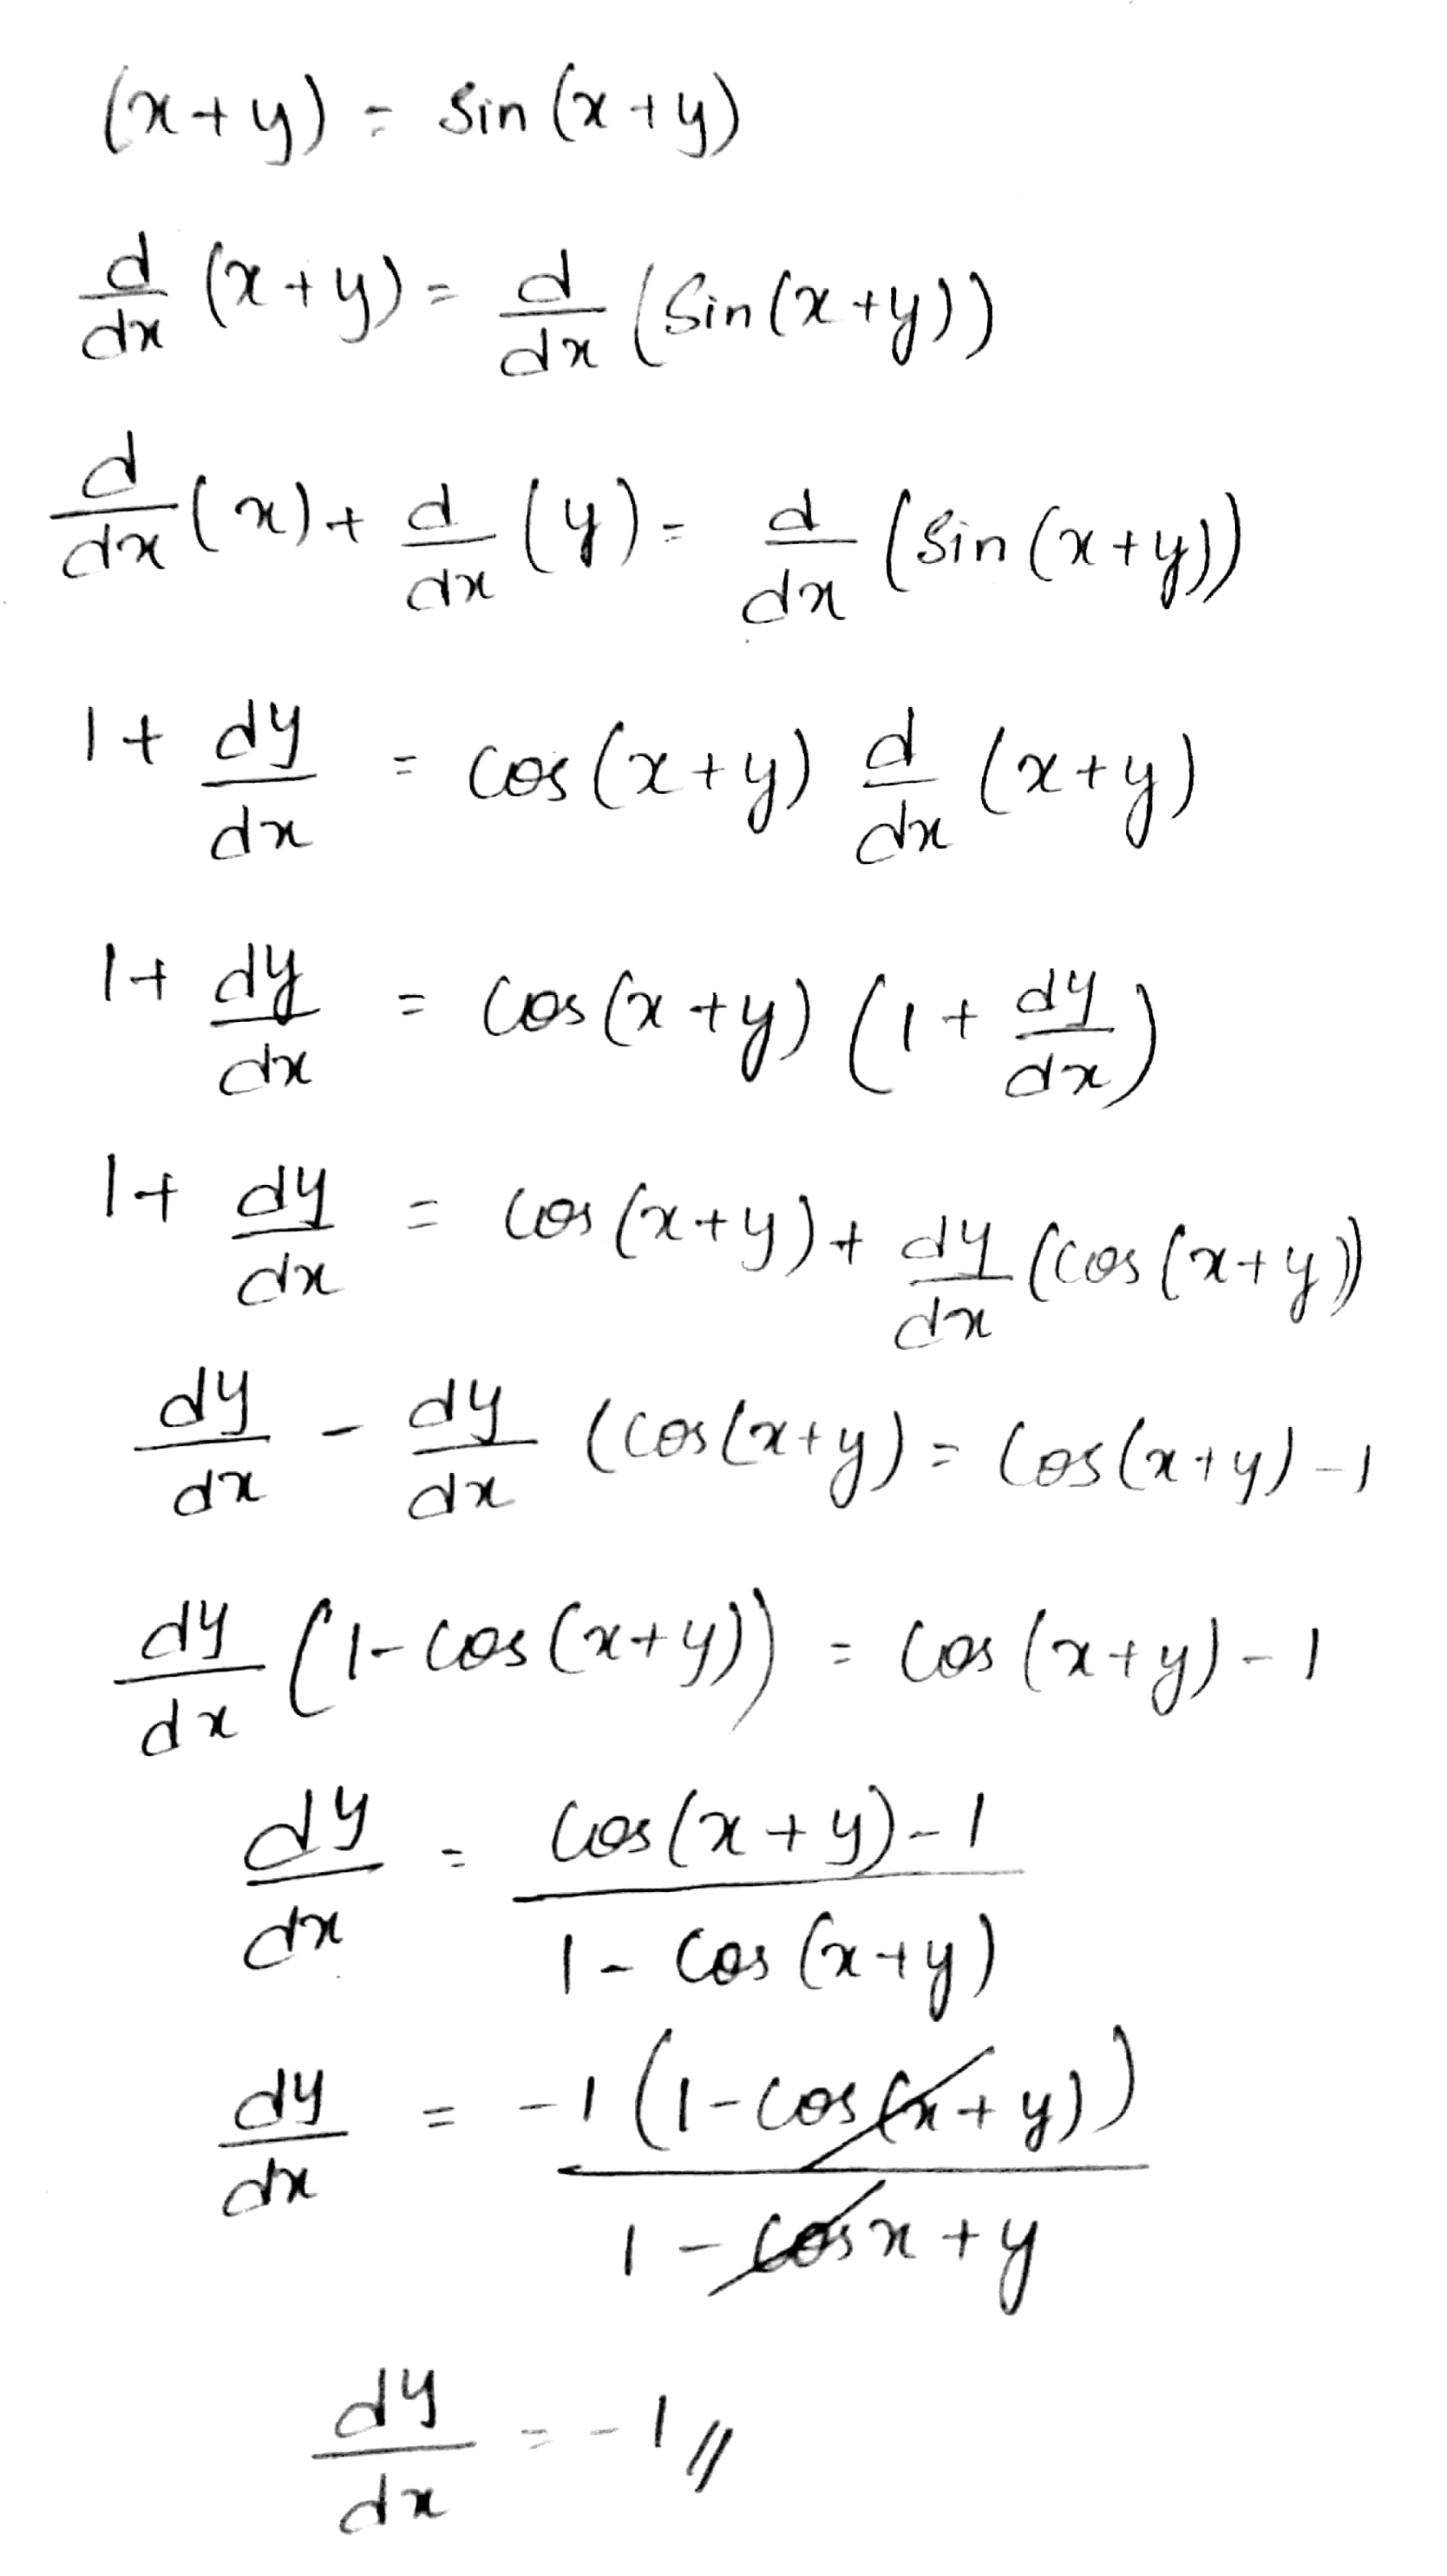 (x+y) = Sin(x+y)
d/dx (x+y) = d/dx (Sin(x+y))
d/dx (x) + d/dx (y) = d/dx (Sin(x+y))
1+ dy/dx = cos(x+y) d/dx (x+y)
1+ dy/dx = cos(x+y) (1+ dy/dx)
1+ dy/dx = cos(x+y) + dy/dx (cos(x+y))
dy/dx - dy/dx (cos(x+y) = cos(x+y) - 1
dy/dx (1-cos(x+y)) = cos(x+y) - 1
dy/dx = cos(x+y)-1 / 1-cos(x+y)
dy/dx = -1(1-cos(x+y)) / 1-cosx+y
dy/dx = -1//